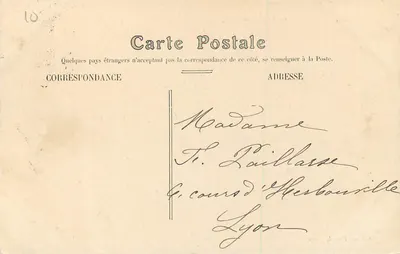 10
Carte Postale
Quelques pays étrangers n'acceptent pas la correspondance de ce côté, se renseigner à la Poste.
CORRESPONDANCE
ADRESSE
Madame
F. Paillasse
4, cours d'Herbouville
Lyon